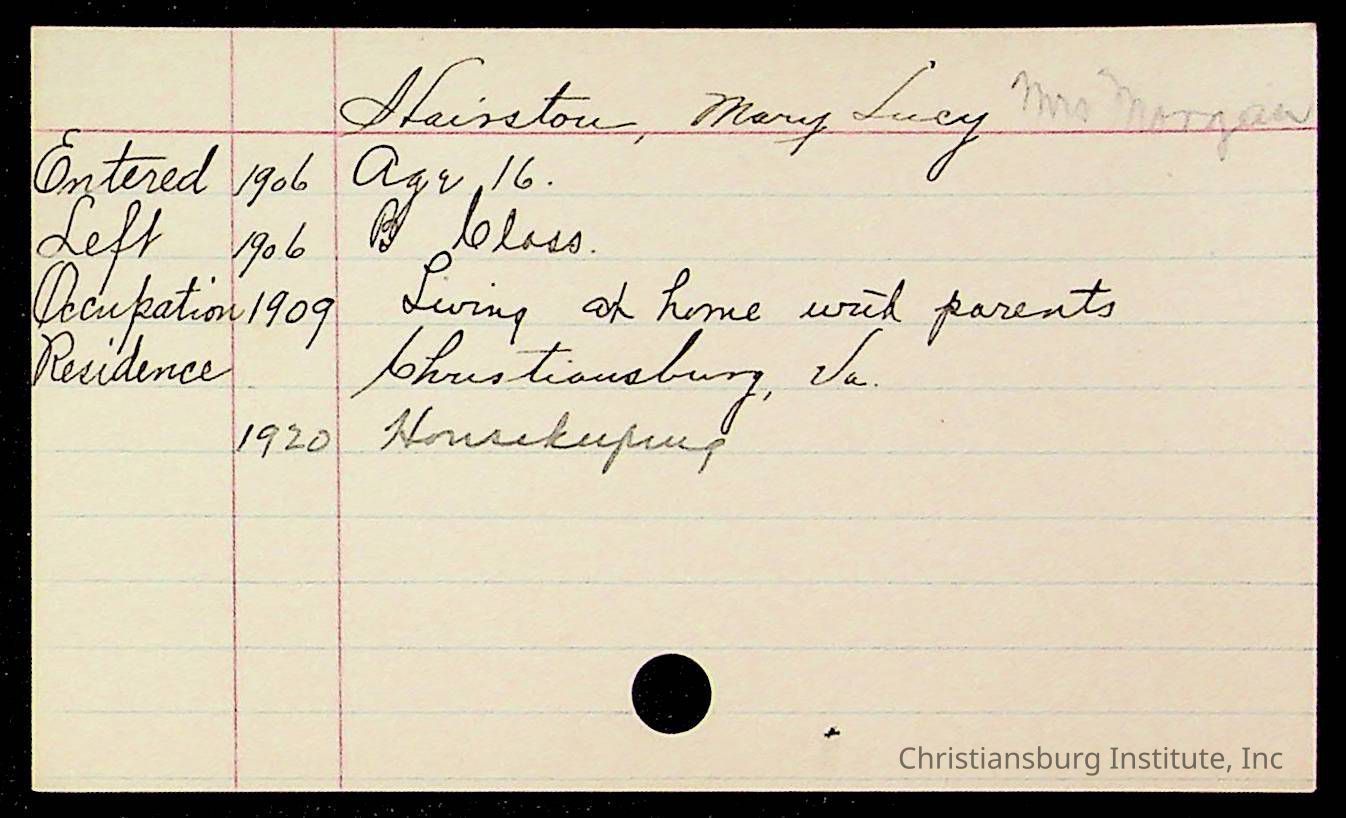 Hairston, Mary Lucy Mrs Morgan
Entered 1906 Age 16.
Left 1906 B Class.
Occupation 1909 Living at home with parents
Residence Christiansburg, Va.
1920 Housekeeping
Christiansburg Institute, Inc